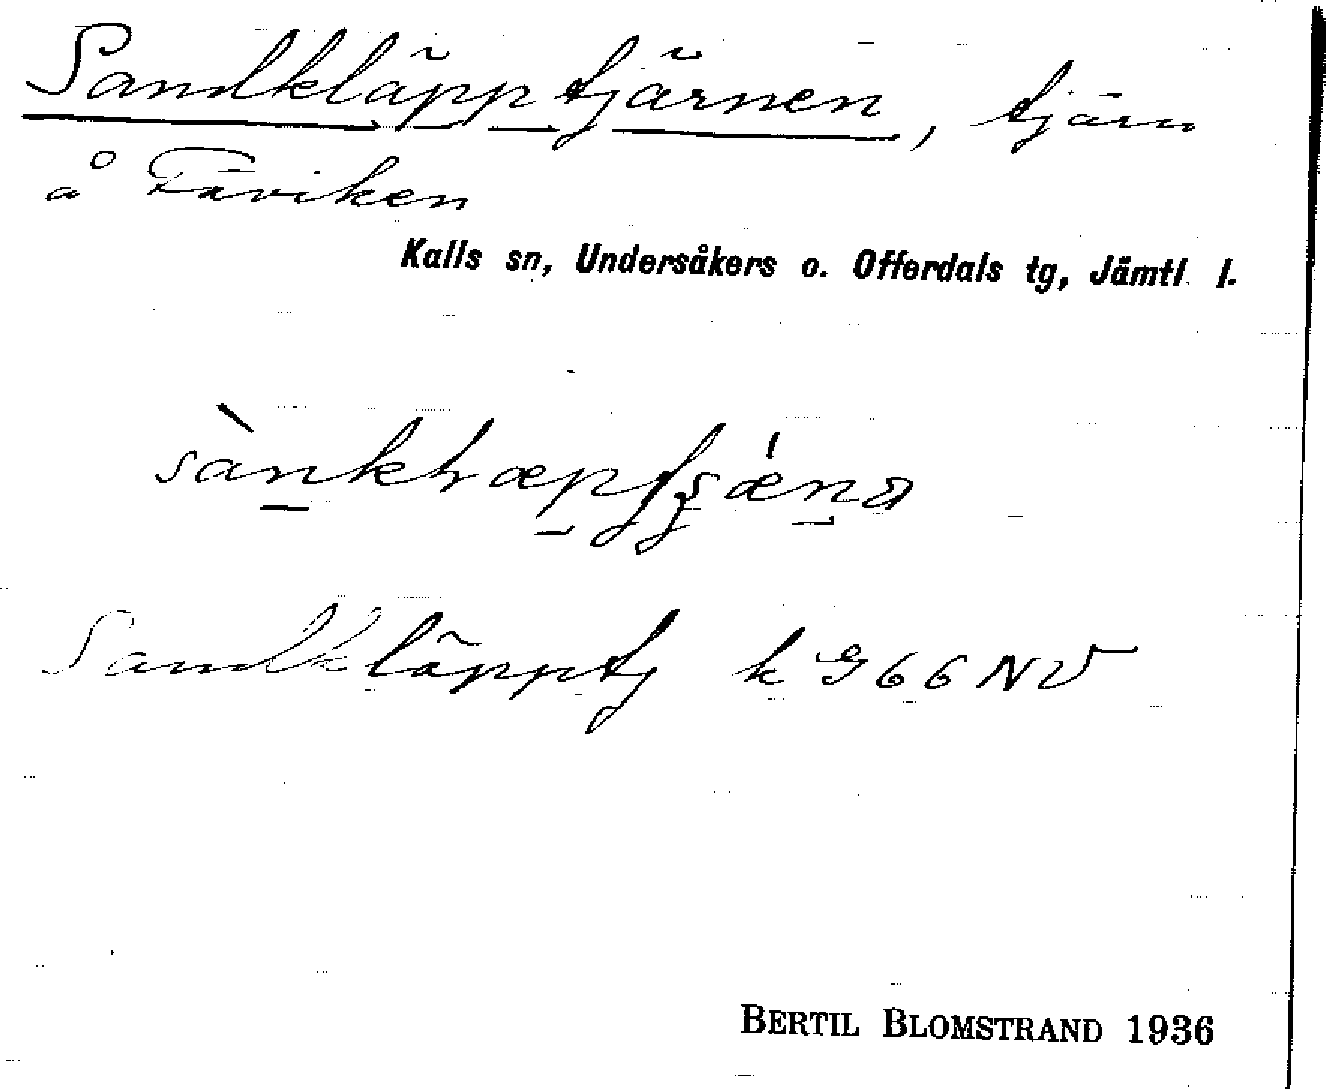 Sandkläpptjärnen, tjärn
å Fäviken
Kalls sn, Undersåkers o. Offerdals tg, Jämtl l.
Sandkläpptj k G66NV
BERTIL BLOMSTRAND 1936